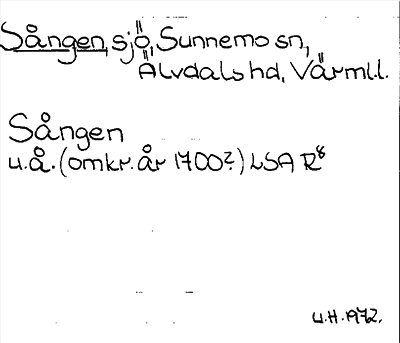 Sången, sjö, Sunnemo sn,
Älvdals hd, Värml.l.
Sången
u.å. (omkr. år 1700?) LSA R8
U.H. 1972.